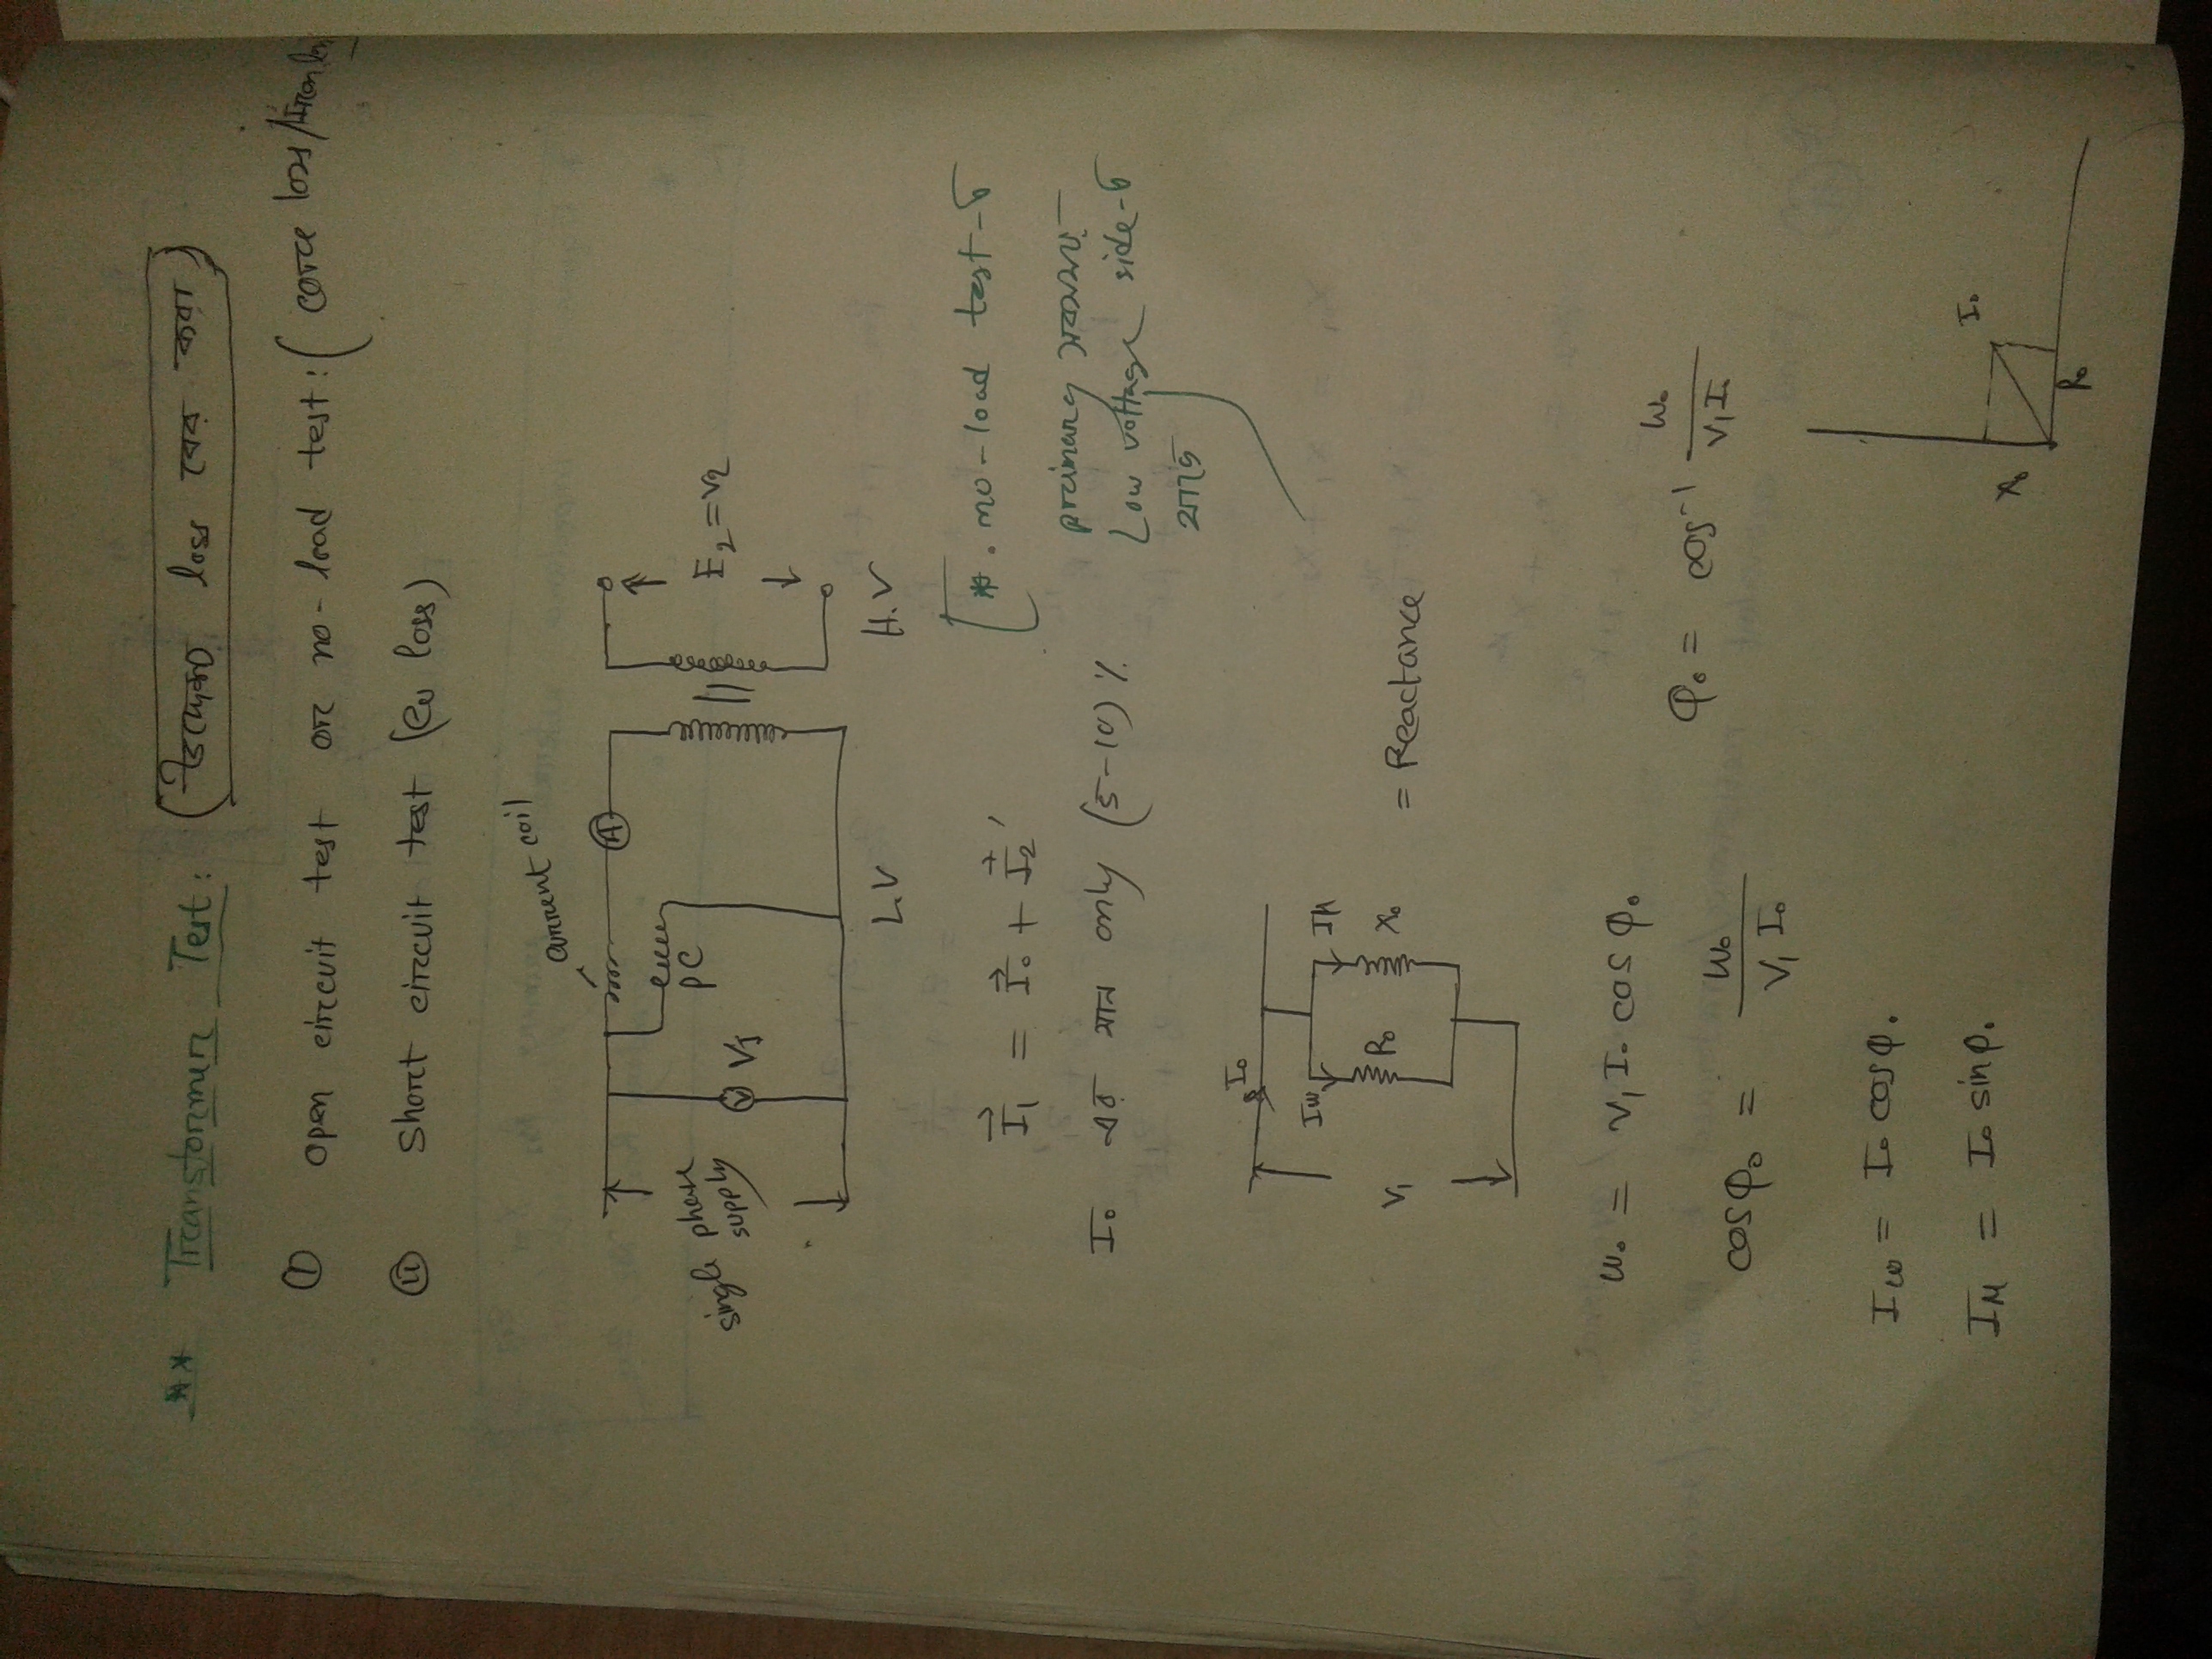 ** Transformer Test: (উদ্দেশ্য loss বের করা)
① open circuit test or no-load test: (core loss/Iron
② Short circuit test (Cu loss)
current coil
A
PC
single phase supply
V V1
E2 = V2
L.V
H.V
I⃗1 = I⃗0 + I⃗2'
[*. no-load test-এ
primary সবসময়
Low voltage side-এ
থাকে
I0 এর মান only (5-10)%
I0
Iw Iμ
V1 R0 X0 = Reactance
W0 = V1 I0 cos φ0
φ0 = cos⁻¹ W0/V1I0
cosφ0 = W0/V1 I0
Iw = I0 cosφ0
Iμ = I0 sinφ0
I0
X0
R0